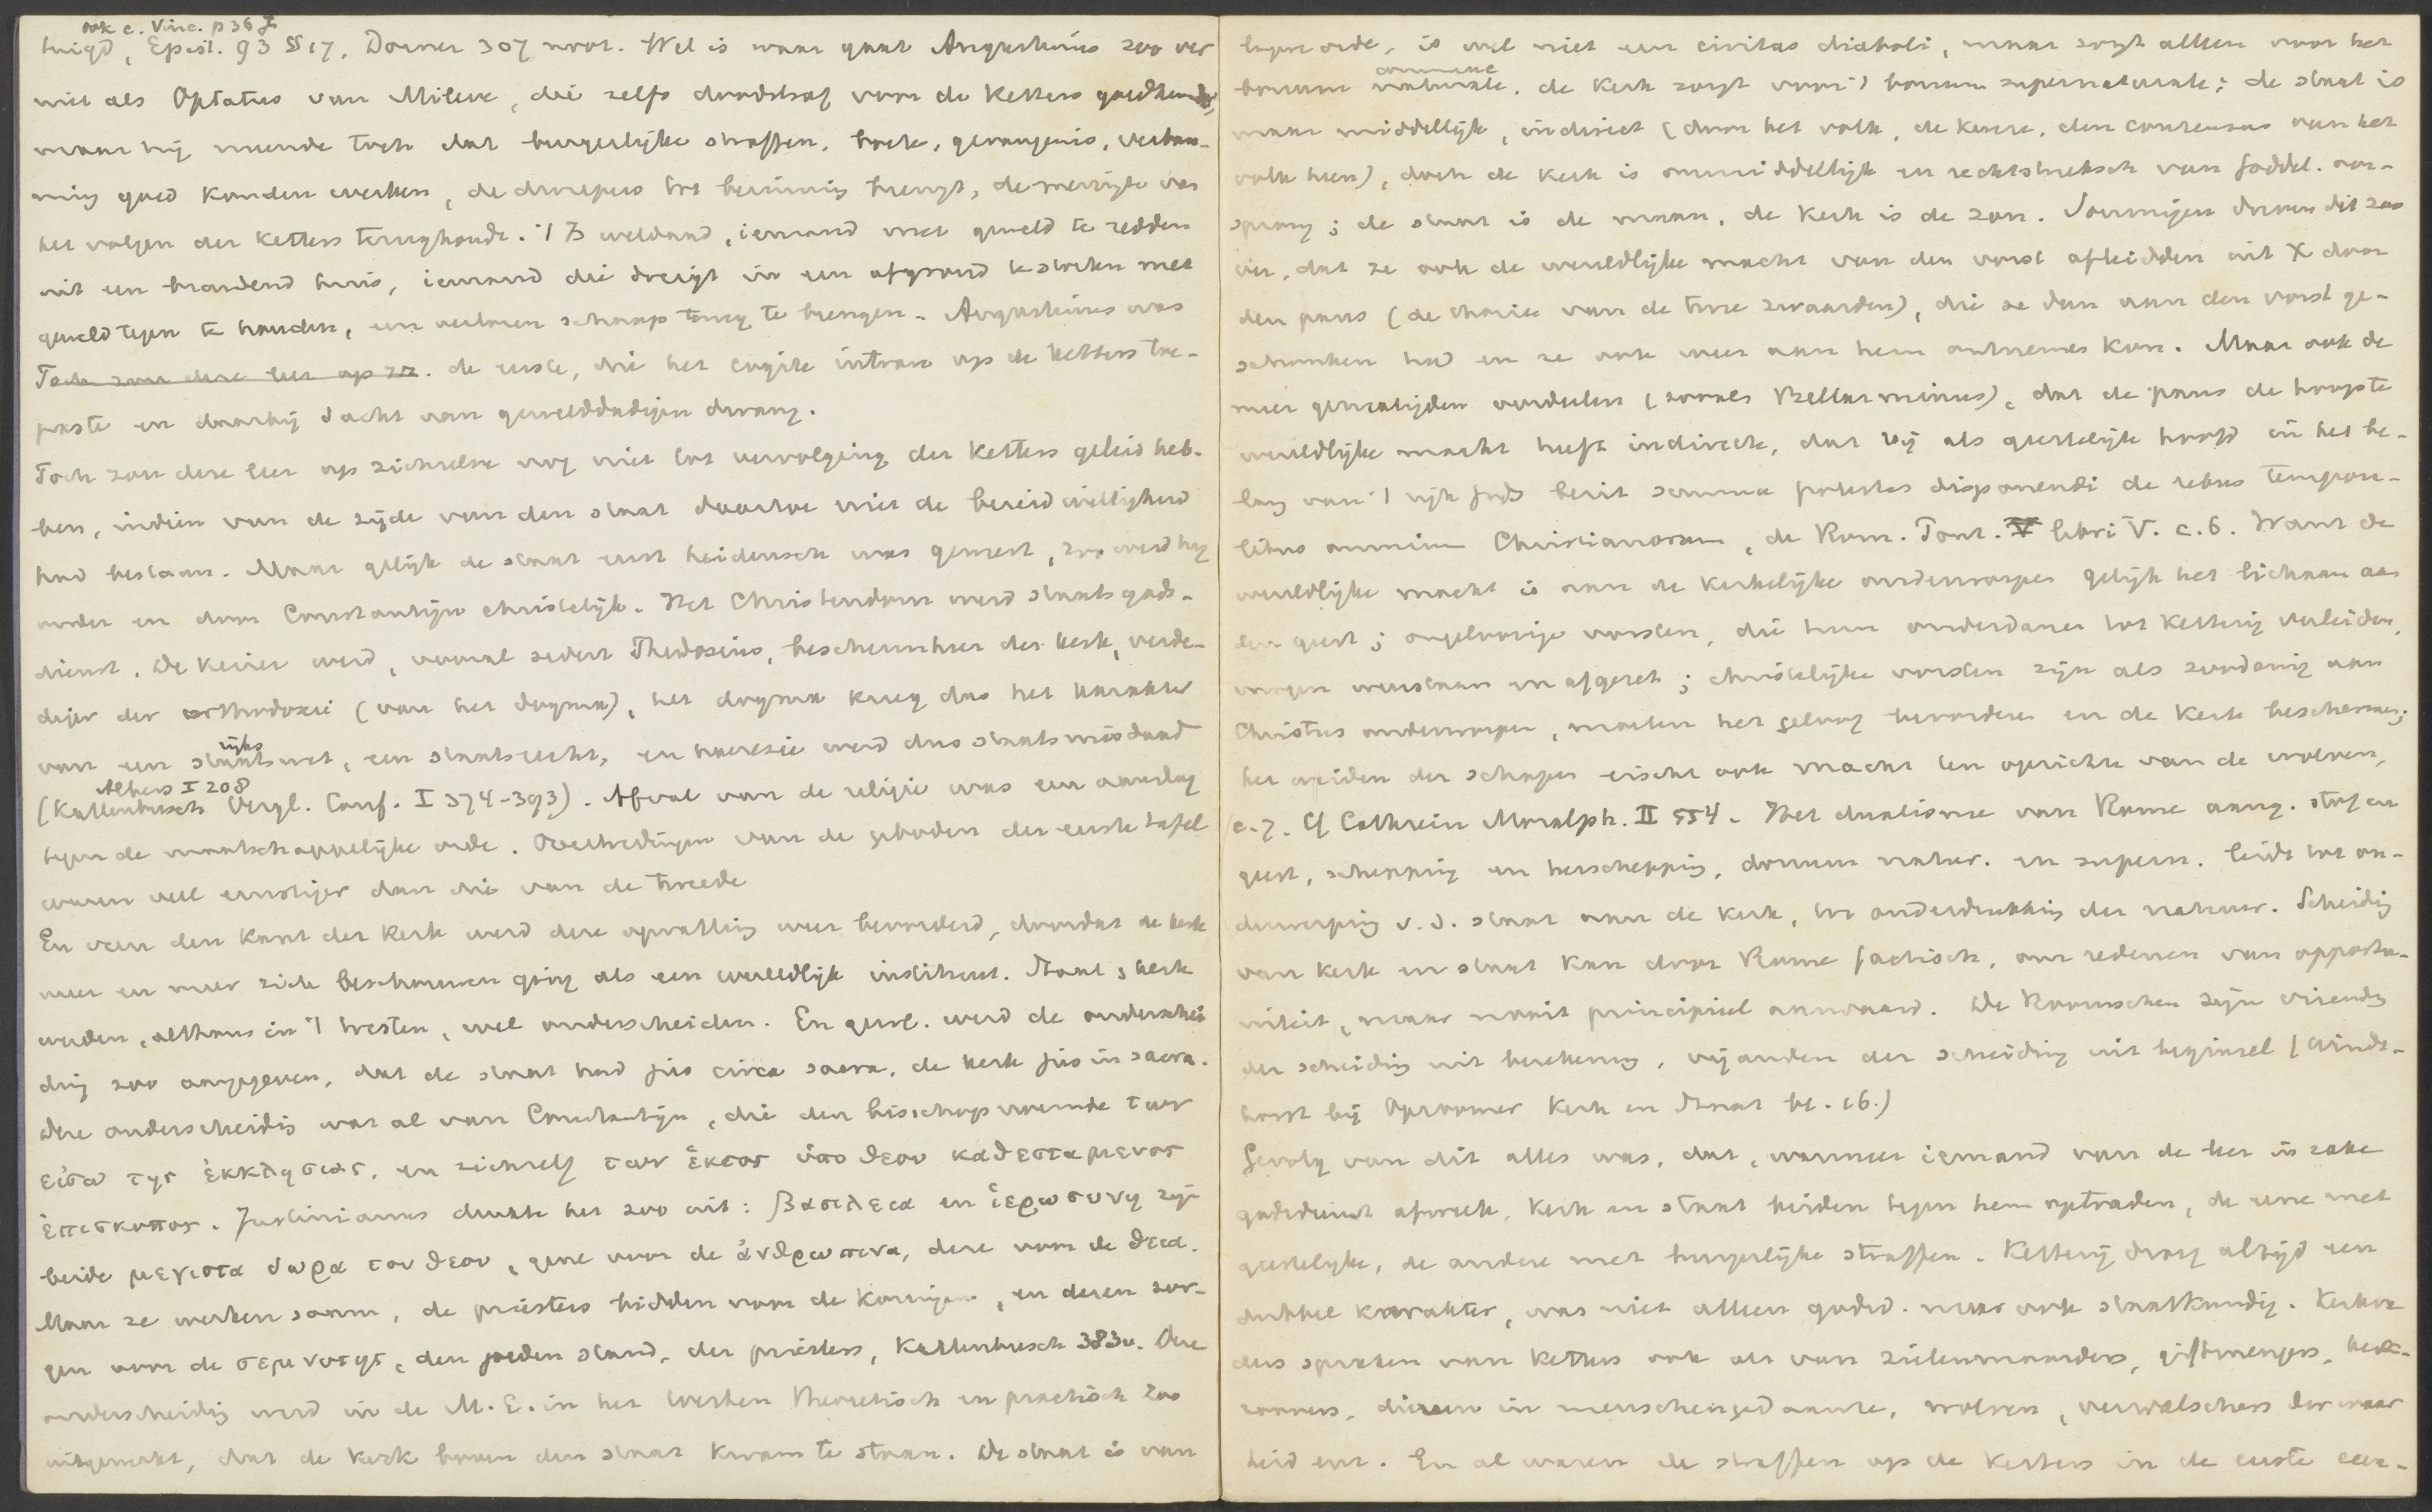 ook c. Vinc. p 36 f
tuigd, Epist. 93 § 17, Dorner 307 noot. Wel is waar gaat Augustinus zoo ver
niet als Optatus van Mileve, die zelfs doodstraf voor de ketters goedkeurde,
maar hij meende toch dat burgerlijke straffen, boete, gevangenis, verban-
ning goed konden werken, de dwepers tot bezinning brengt, de menigte van
het volgen der ketters terughoudt. 't Is weldaad, iemand met geweld te redden
uit een brandend huis, iemand die dreigt in een afgrond te storten met
geweld tegen te houden, een verloren schaap terug te brengen. Augustinus was
Toch zou deze leer op zz. de eerste, die het cogite intrare op de ketters toe-
paste en daarbij dacht van gewelddadigen dwang.
Toch zou deze leer op zichzelve nog niet tot vervolging der ketters geleid heb-
ben, indien van de zijde van den staat daartoe niet de bereidwilligheid
had bestaan. Maar gelijk de staat eerst heidensch was geweest, zoo werd hij
onder en door Constantijn christelijk. Het Christendom werd staatsgods-
dienst. De keizer werd, vooral sedert Theodosius, beschermheer der kerk, verde-
diger der orthodoxie (van het dogma), het dogma kreeg dus het karakter
rijks
van een staatswet, een staatsrecht, en haeresie werd dus staatsmisdaad
Albers I 208
(Kattenbusch Vergl. Conf. I 374-393). Afval van de religie was een aanslag
tegen de maatschappelijke orde. Overtredingen van de geboden der eerste tafel
waren veel ernstiger dan die van de tweede
En van den kant der kerk werd deze opvatting weer bevorderd, doordat de kerk
meer en meer zich beschouwen ging als een wereldlijk instituut. Staat & kerk
werden, althans in 't Westen, wel onderscheiden. En gew. werd de onderschei
ding zoo aangegeven, dat de staat had jus circa sacra, de kerk jus in sacra.
Deze onderscheidig was al van Constantijn, die den bisschop noemde των
εἰσω της ἐκκλησιας, en zichzelf των ἐκτος ὑπο θεου καθεσταμενος
ἐπισκοπος. Justinianus drukte het zoo uit: βασιλεια en ἱερωσυνη zijn
beide μεγιστα δωρα του θεου, gene voor de ἀνθρωπινα, deze voor de θεια.
Maar ze werken saam, de priesters bidden voor de koningen, en deren zor-
gen voor de σεμνοτης, den goeden stand, der priesters, Kattenbusch 383v. Deze
onderscheidig werd in de M.E. in het Westen theoretisch en practisch zoo
uitgewerkt, dat de kerk boven den staat kwam te staan. De staat is van
lagere orde, is wel niet een civitas diaboli, maar zorgt alleen voor het
commune
bonum naturale, de kerk zorgt voor 't bonum supernaturale; de staat is
maar middellijk, indirect (door het volk, de keuze, den consensus van het
volk heen), doch de kerk is onmiddellijk en rechtstreeksch van goddel. oor-
sprong; de staat is de maan, de kerk is de zon. Sommigen dreven dit zoo
ver, dat ze ook de wereldlijke macht van den vorst afleidden uit X door
den paus (de theorie van de twee zwaarden), die ze dan aan den vorst ge-
schonken had en ze ook weer aan hem ontnemen kon. Maar ook de
meer gematigden oordeelen (zooals Bellarminus), dat de paus de hoogste
wereldlijke macht heeft indirecte, dat hij als geestelijk hoofd in het be-
lang van 't rijk Gods bezit summa potestas disponendi de rebus tempora-
libus omnium Christianorum, de Rom. Pont. V libri V. c. 6. Want de
wereldlijke macht is aan de kerkelijke onderworpen gelijk het lichaam aan
den geest; ongeloovige vorsten, die hun onderdanen tot ketterij verleiden,
mogen weerstaan en afgezet; christelijke vorsten zijn als zoodanig aan
Christus onderworpen, moeten het geloof bevorderen en de kerk beschermen;
het weiden der schapen eischt ook macht ten opzichte van de wolven,
c. 7. Cf Cathrein Moralph. II 554. Het dualisme van Rome aang. stof en
geest, schepping en herschepping, donum natur. en supern. leidt tot on-
derwerping v. d. staat aan de kerk, tot onderdrukking der natuur. Scheidig
van kerk en staat kan door Rome factisch, om redenen van opportu-
niteit, maar nooit principieel aanvaard. De Roomschen zijn vrienden
der scheidig uit berekening, vijanden der scheiding uit beginsel (Windt-
horst bij Opzoomer Kerk en Staat bl. 16.)
Gevolg van dit alles was, dat, wanneer iemand van de leer in zake
godsdienst afweek, kerk en staat beiden tegen hem optraden, de eene met
geestelijke, de andere met burgerlijke straffen. Ketterij droeg altijd een
dubbel karakter, was niet alleen godsd. maar ook staatkundig. Kerkva
ders spraken van ketters ook als van zielenmoorders, giftmengers,
roovers, dieren in menschengedaante, wolven, vervalschers der waar
heid enz. En al waren de straffen op de ketters in de eerste eeu-